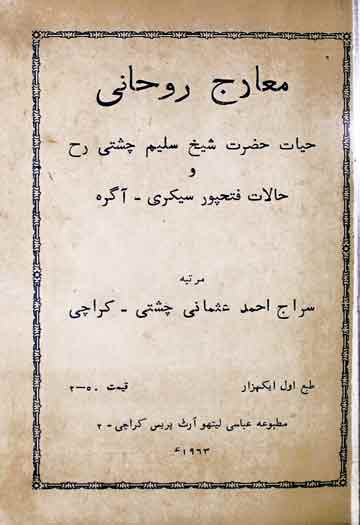 معارج روحانی
حیات حضرت شیخ سلیم چشتی رح
و
حالات فتحپور سیکری - آگرہ
مرتبہ
سراج احمد عثمانی چشتی - کراچی
طبع اول ایکہزار قیمت ۵۰—۲
مطبوعہ عباسی لیتھو آرٹ پریس کراچی - ۲
۱۹۶۳ء